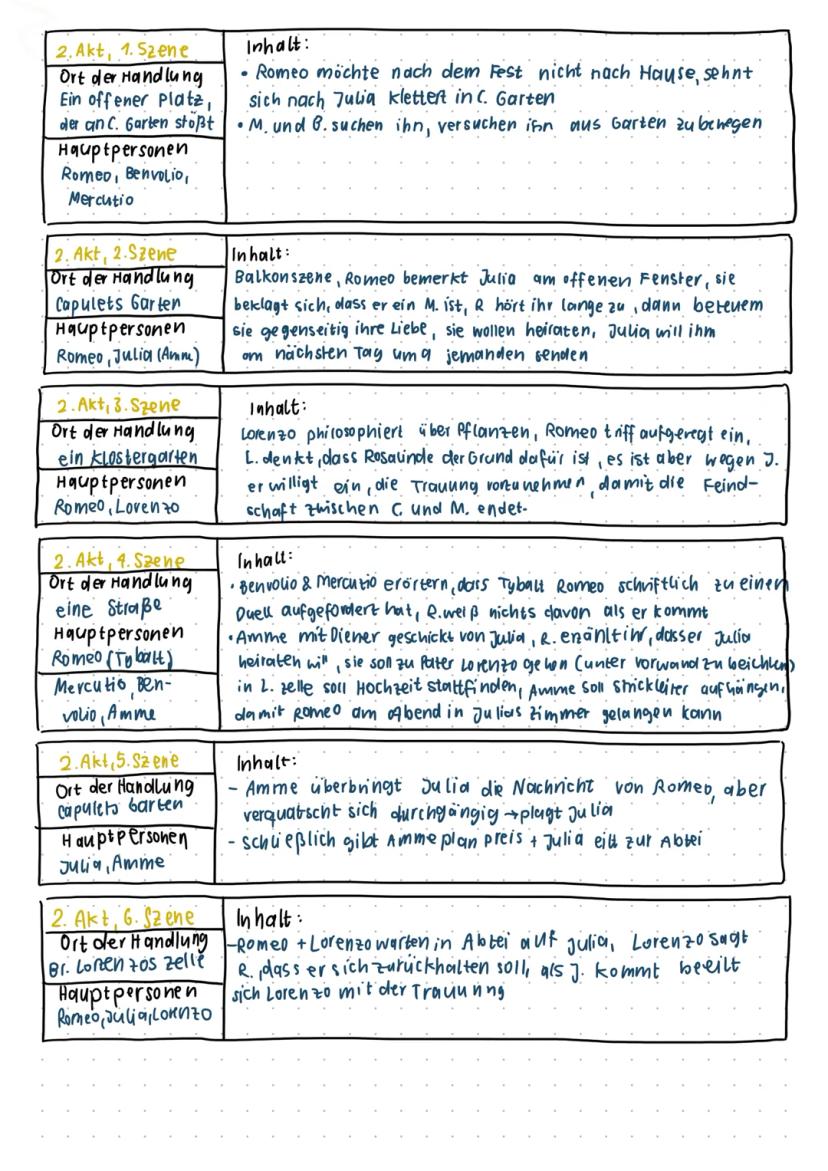 2. Akt, 1. Szene
Ort der Handlung
Ein offener Platz,
der an C. Garten stößt
Hauptpersonen
Romeo, Benvolio,
Mercutio
Inhalt:
• Romeo möchte nach dem Fest nicht nach Hause, sehnt
sich nach Julia klettert in C. Garten
• M. und B. suchen ihn, versuchen ihn aus Garten zu bewegen
2. Akt, 2. Szene
Ort der Handlung
Capulets Garten
Hauptpersonen
Romeo, Julia (Amme)
Inhalt:
Balkonszene, Romeo bemerkt Julia am offenen Fenster, sie
beklagt sich, dass er ein M. ist, R hört ihr lange zu, dann beteuern
sie gegenseitig ihre Liebe, sie wollen heiraten, Julia will ihm
am nächsten Tag um 9 jemanden senden
2. Akt, 3. Szene
Ort der Handlung
ein Klostergarten
Hauptpersonen
Romeo, Lorenzo
Inhalt:
Lorenzo philosophiert über Pflanzen, Romeo triff aufgeregt ein,
L. denkt, dass Rosalinde der Grund dafür ist, es ist aber wegen J.
er willigt ein, die Trauung vorzunehmen, damit die Feind-
schaft zwischen C. und M. endet.
2. Akt, 4. Szene
Ort der Handlung
eine Straße
Hauptpersonen
Romeo (Tybalt)
Mercutio, Ben-
volio, Amme
Inhalt:
• Benvolio & Mercutio erörtern, dass Tybalt Romeo schriftlich zu einem
Duell aufgefordert hat, R. weiß nichts davon als er kommt
• Amme mit Diener geschickt von Julia, R. erzählt ihr, dass er Julia
heiraten will, sie soll zu Pater Lorenzo gehen (unter vorwand zu beichten)
in L. zelle soll Hochzeit stattfinden, Amme soll Strickleiter aufhängen,
damit Romeo am Abend in Julias Zimmer gelangen kann
2. Akt, 5. Szene
Ort der Handlung
Capulets Garten
Hauptpersonen
Julia, Amme
Inhalt:
- Amme überbringt Julia die Nachricht von Romeo, aber
verquatscht sich durchgängig → plagt Julia
- Schließlich gibt Amme plan preis + Julia eilt zur Abtei
2. Akt, 6. Szene
Ort der Handlung
Br. Lorenzos zelle
Hauptpersonen
Romeo, Julia, Lorenzo
Inhalt:
- Romeo + Lorenzo warten in Abtei auf Julia, Lorenzo sagt
R., dass er sich zurückhalten soll, als J. kommt beeilt
sich Lorenzo mit der Trauung